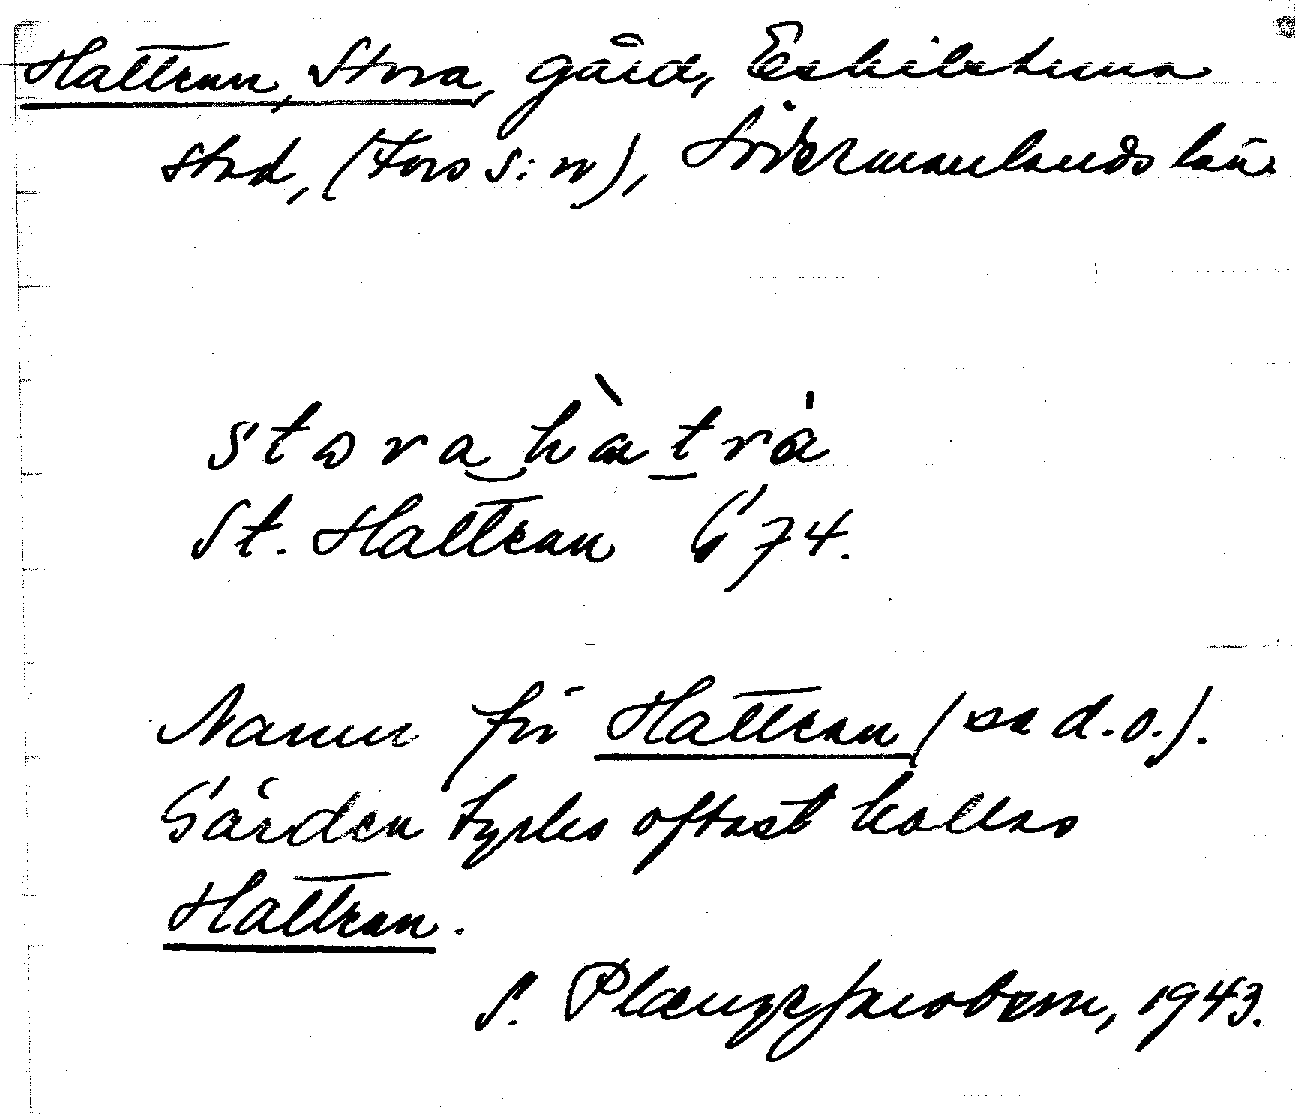 Hattran, Stora, gård, Eskilstuna
stad, (Fors s:n), Södermanlands län.
stora hàtrá
St. Hattran G 74.
Namn för Hattran (se d.o.).
Gården tycks oftast kallas
Hattran.
S. Plænge Jacobson, 1943.